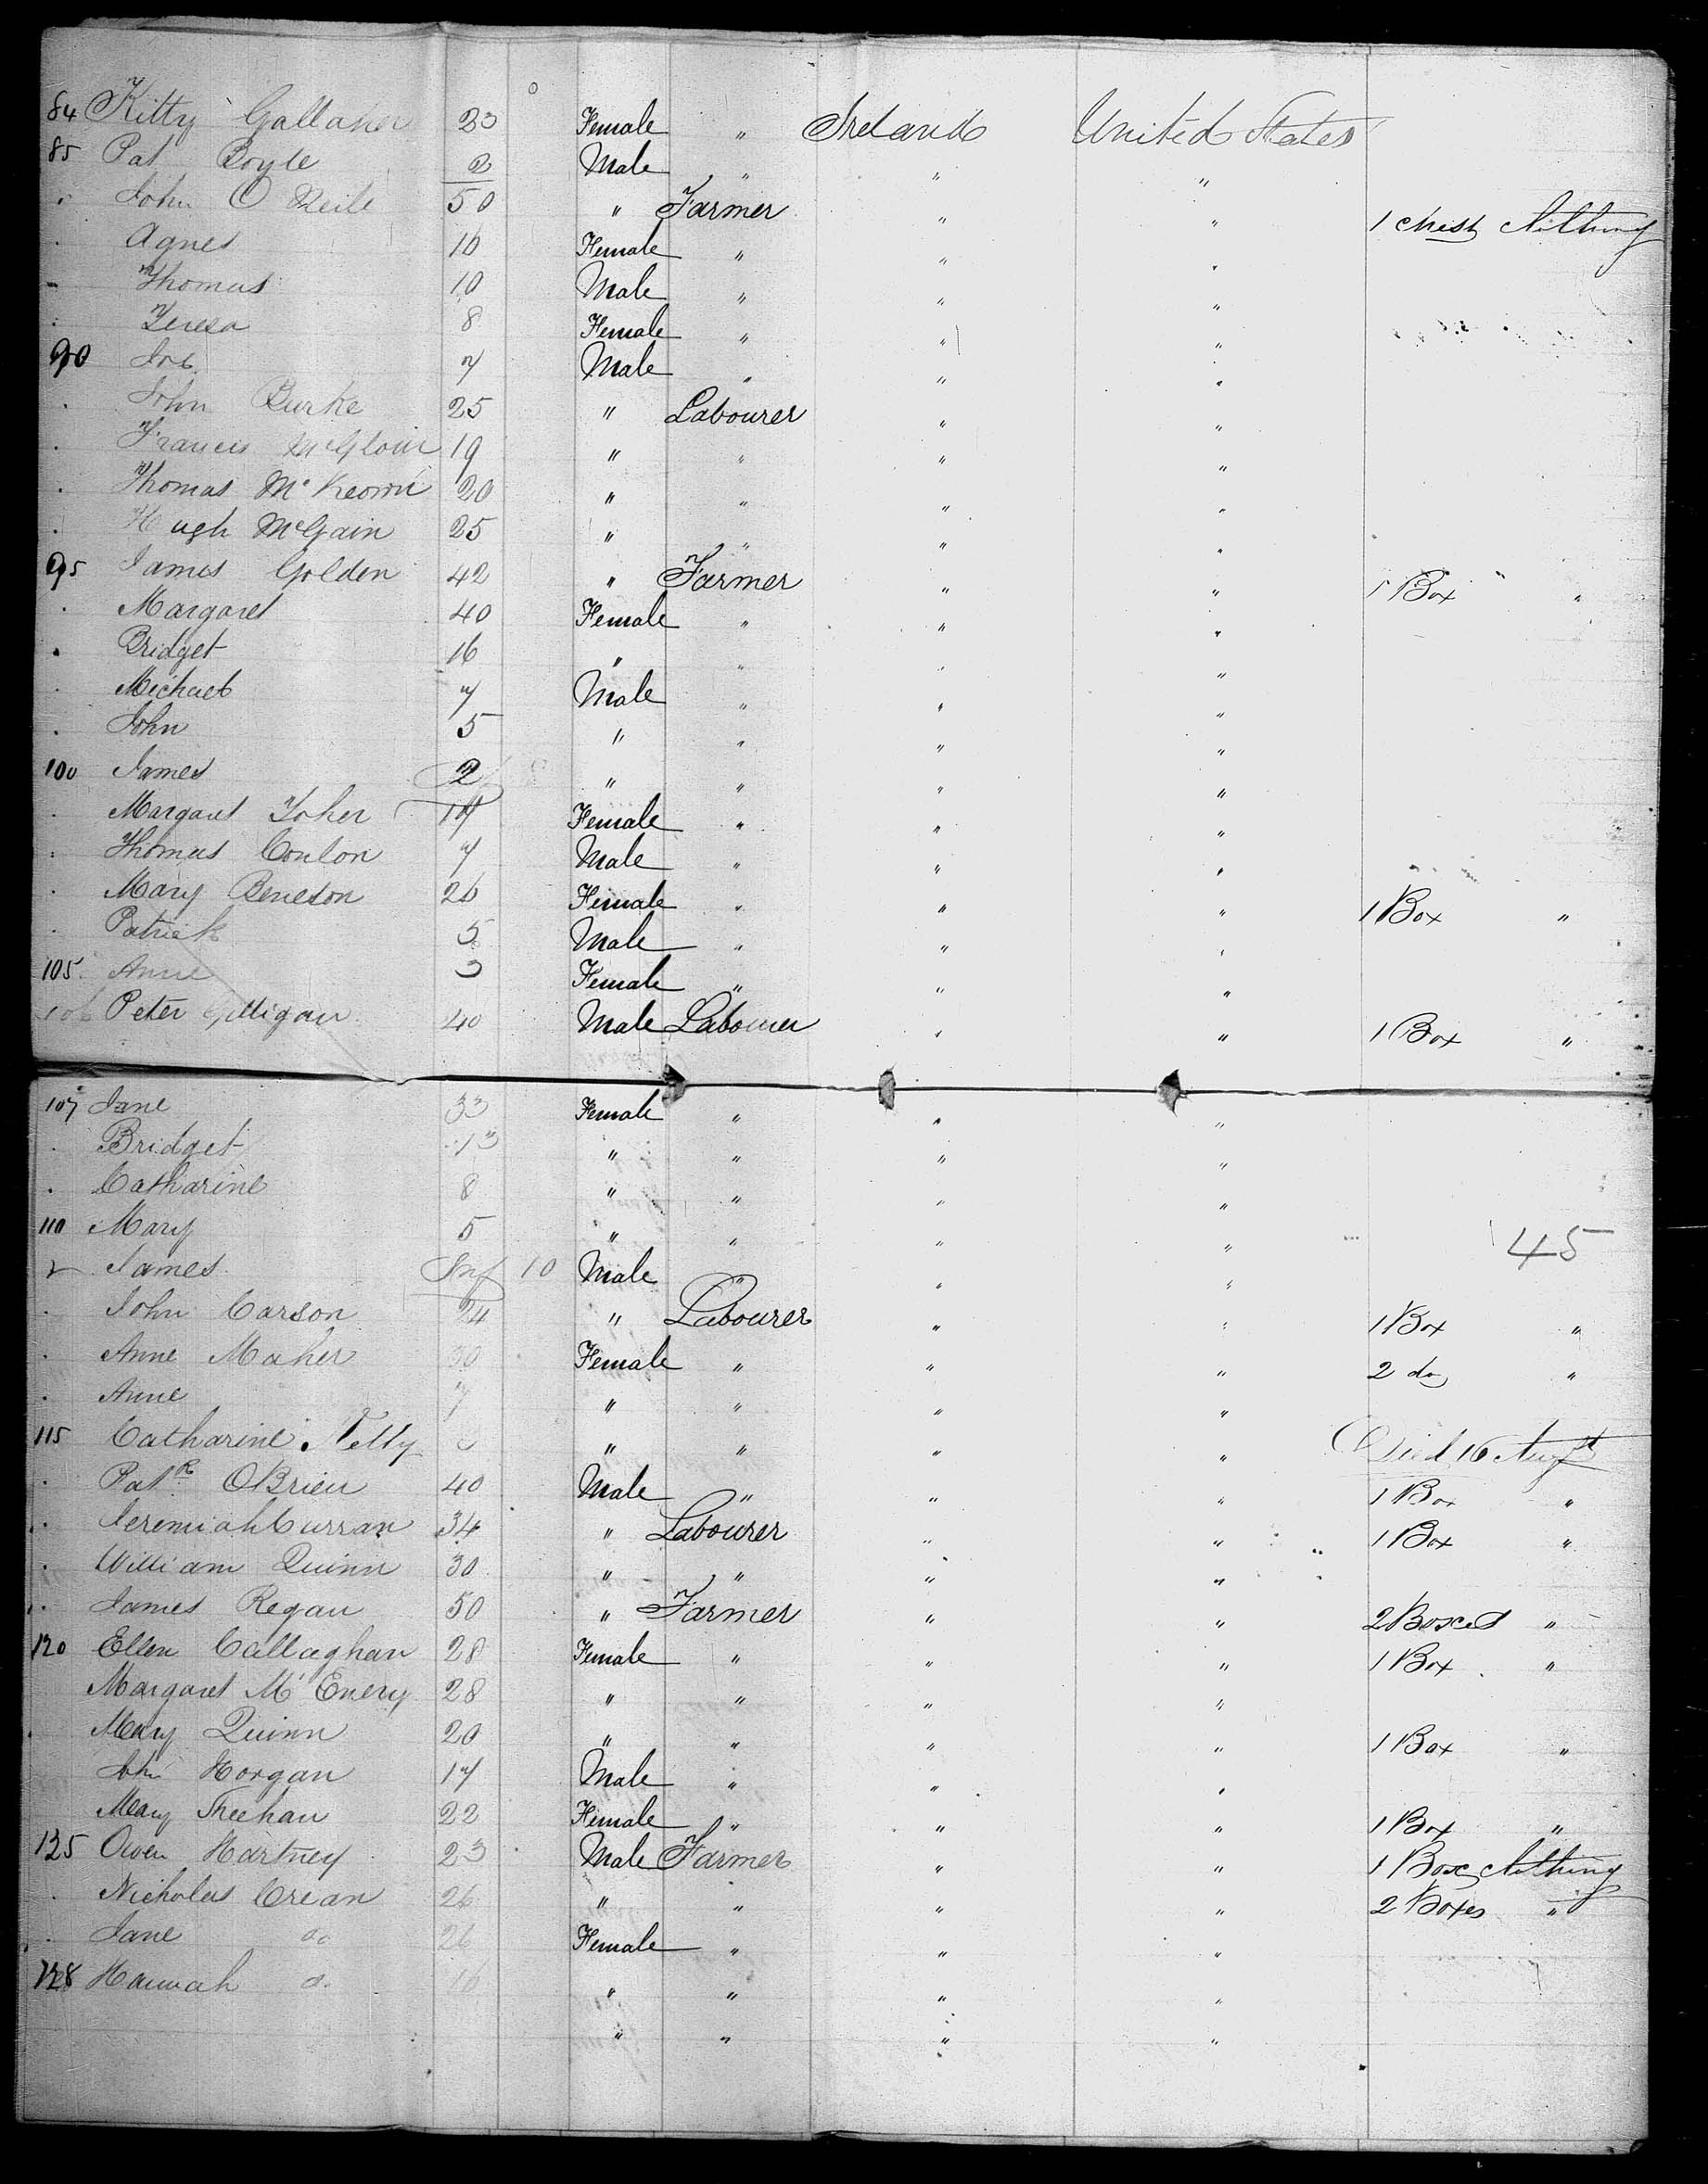 84 Kitty Gallaher 23 Female " Ireland United States
85 Pat Boyle 2 Male " " "
John O Neile 50 " Farmer " " 1 Chest Clothing
Agnes 16 Female " " "
Thomas 10 Male " " "
Teresa 8 Female " " "
90 7 Male " " "
John Burke 25 " Labourer " "
Francis McGloin 19 " " " "
Thomas McKeown 20 " " " "
Hugh McGain 25 " " " "
95 James Golden 42 " Farmer " " 1 Box " "
Margaret 40 Female " " "
Bridget 16 " " " "
Michael 7 Male " " "
John 5 " " " "
100 James 2 " " " "
Margaret Toher 19 Female " " "
Thomas Conlon 7 Male " " "
Mary Beneson 26 Female " " " 1 Box "
Patrick 5 Male " " "
105 Anne 3 Female " " "
106 Peter Gilligan 40 Male Labourer " " 1 Box "
107 Jane 33 Female " " "
Bridget 13 " " " "
Catharine 8 " " " "
110 Mary 5 " " " "
45
James Inf 10 Male " " "
John Carson 24 " Labourer " " 1 Box "
Anne Maher 30 Female " " " 2 do "
Anne 7 " " " "
115 Catharine " " " " Died 16 Augst
Patk OBrien 40 Male " " " 1 Box "
Jeremiah Curran 34 " Labourer " " 1 Box "
William Quinn 30 " " " "
James Regan 50 " Farmer " " 2 Boxes "
120 Ellen Callaghan 28 Female " " " 1 Box "
Margaret McEnery 28 " " " "
Mary Quinn 20 " " " " 1 Box "
John Horgan 17 Male " " "
Mary Sheehan 22 Female " " " 1 Box "
125 Owen Hartney 23 Male Farmer " " 1 Box Clothing
Nicholas Crean 26 " " " " 2 Boxes "
Jane do 26 Female " " "
128 Hannah do " " " "
" " " "